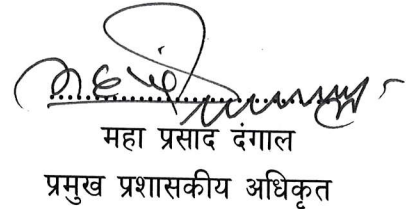 महा प्रसाद दंगाल
प्रमुख प्रशासकीय अधिकृत